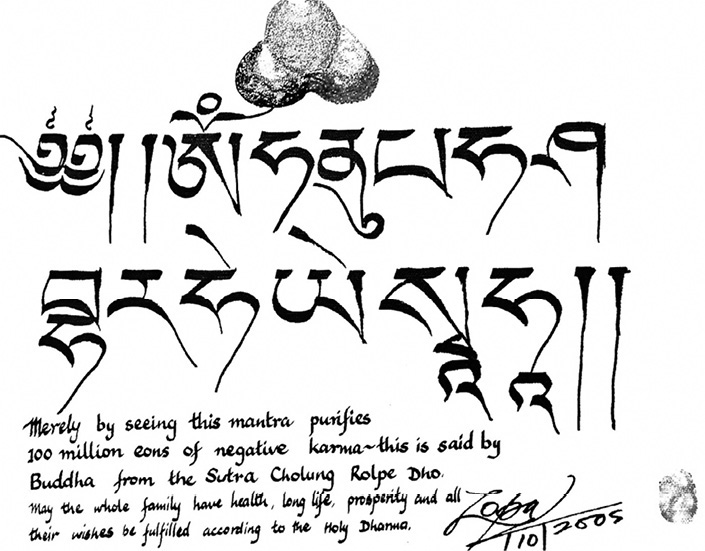 ༄༅། །ཨོཾ ཧ ནུ པ ཧ ཤ
བྷ ར ཧེ ཡེ སྭཱ ཧཱ། །
Merely by seeing this mantra purifies
100 million eons of negative karma - this is said by
Buddha from the Sutra Cholung Rolpe Dho.
May the whole family have health, long life, prosperity and all
their wishes be fulfilled according to the Holy Dharma.
Zopa
/10/2005